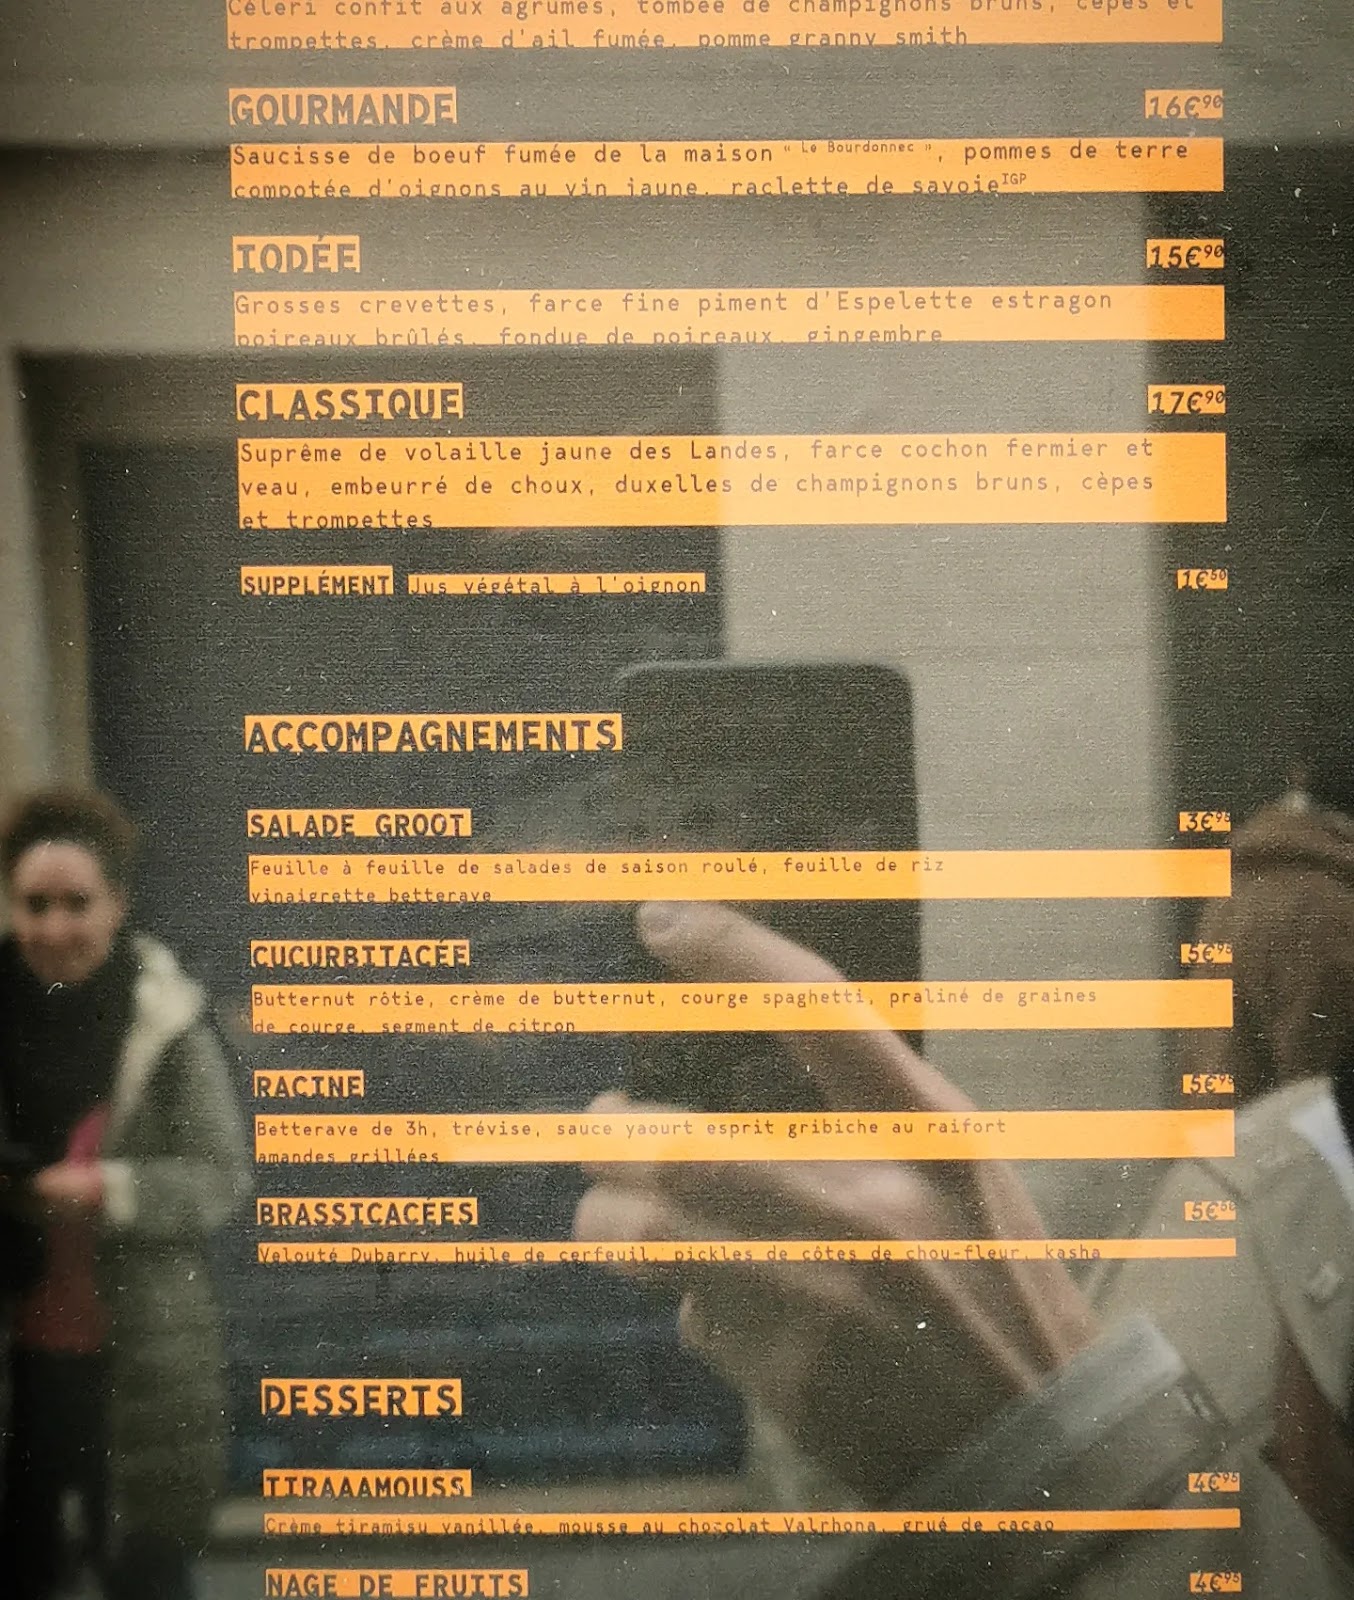 Céleri confit aux agrumes, tombée de champignons bruns, cèpes et
trompettes, crème d'ail fumée, pomme granny smith
GOURMANDE 16€90
Saucisse de boeuf fumée de la maison " Le Bourdonnec ", pommes de terre
compotée d'oignons au vin jaune, raclette de savoie IGP
IODÉE 15€90
Grosses crevettes, farce fine piment d'Espelette estragon
poireaux brûlés, fondue de poireaux, gingembre
CLASSIQUE 17€90
Suprême de volaille jaune des Landes, farce cochon fermier et
veau, embeurré de choux, duxelles de champignons bruns, cèpes
et trompettes
SUPPLÉMENT Jus végétal à l'oignon 1€50
ACCOMPAGNEMENTS
SALADE GROOT 3€95
Feuille à feuille de salades de saison roulé, feuille de riz
vinaigrette betterave
CUCURBITACÉE 5€95
Butternut rôtie, crème de butternut, courge spaghetti, praliné de graines
de courge, segment de citron
RACINE 5€95
Betterave de 3h, trévise, sauce yaourt esprit gribiche au raifort
amandes grillées
BRASSICACÉES 5€50
Velouté Dubarry, huile de cerfeuil, pickles de côtes de chou-fleur, kasha
DESSERTS
TIRAAAMOUSS 4€95
Crème tiramisu vanillée, mousse au chocolat Valrhona, grué de cacao
NAGE DE FRUITS 4€95